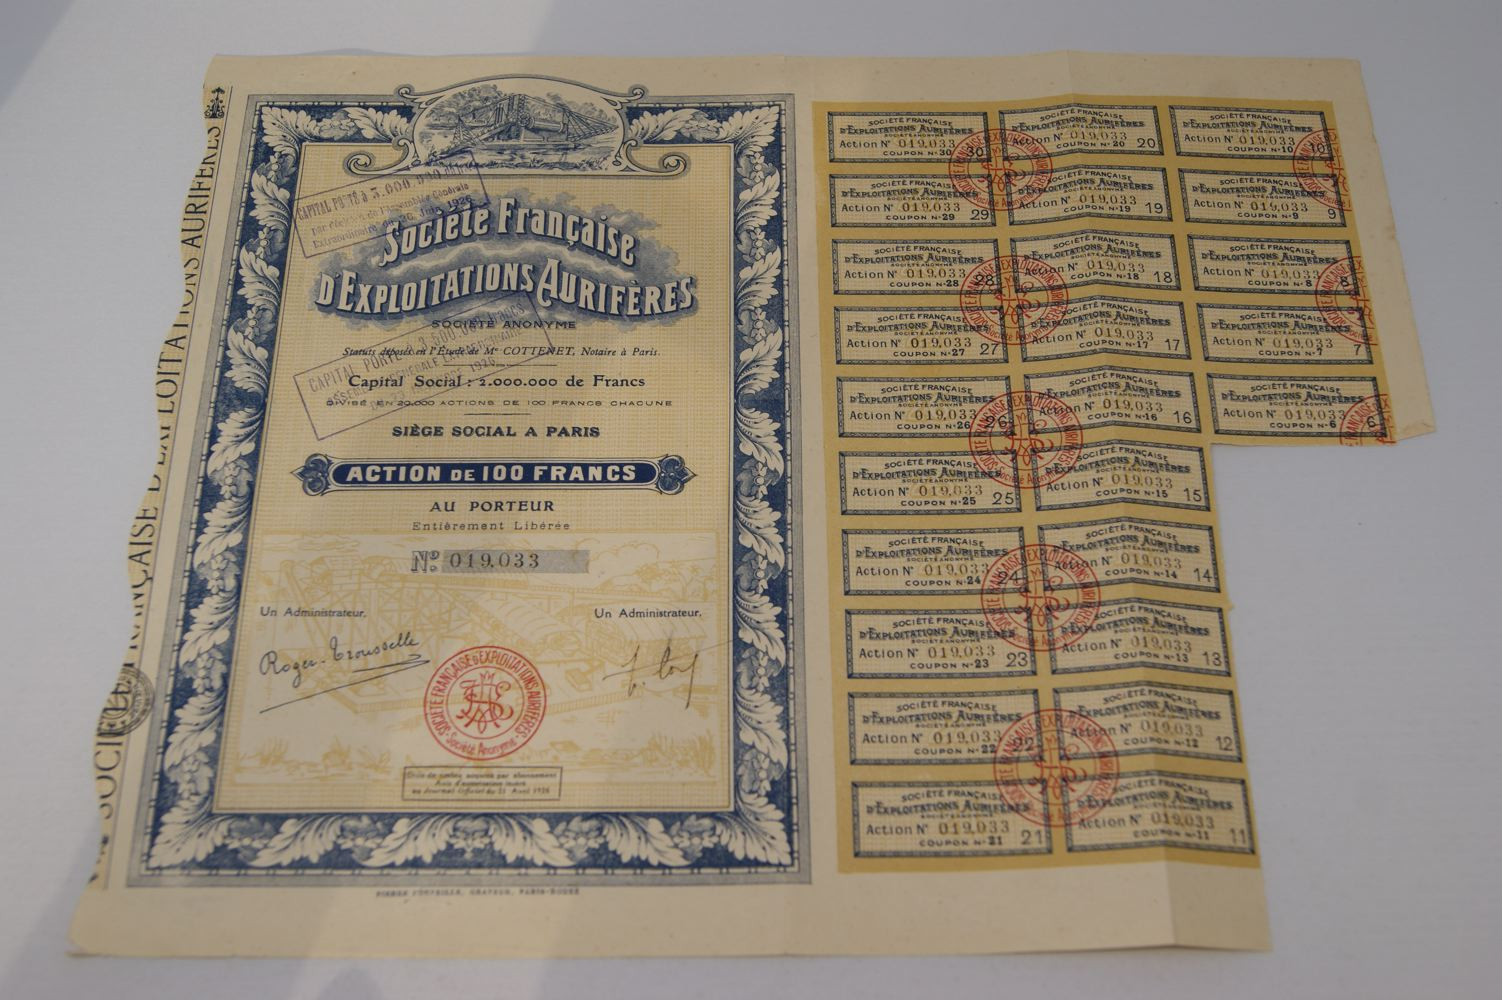 SOCIÉTÉ FRANÇAISE D'EXPLOITATIONS AURIFÈRES
CAPITAL PORTÉ à 3.000.000
par décision de l'Assemblée Générale
Extraordinaire du 26 Juin 1926
Société Française
D'EXPLOITATIONS AURIFÈRES
SOCIÉTÉ ANONYME
Statuts déposés en l'Étude de Me COTTENET, Notaire à Paris.
CAPITAL PORTÉ A 3.500.000 FRANCS
Capital Social : 2.000.000 de Francs
DIVISÉ EN 20.000 ACTIONS DE 100 FRANCS CHACUNE
SIÈGE SOCIAL A PARIS
ACTION DE 100 FRANCS
AU PORTEUR
Entièrement Libérée
No: 019.033
Un Administrateur. Un Administrateur.
Roger-Trousselle
SOCIÉTÉ FRANÇAISE D'EXPLOITATIONS AURIFÈRES
Société Anonyme
Droit de timbre acquitté par abonnement
Avis d'autorisation inséré
au Journal Officiel du 21 Avril 1926
SOCIÉTÉ FRANÇAISE
D'EXPLOITATIONS AURIFÈRES
SOCIÉTÉ ANONYME
Action No 019.033
COUPON No 30 30
SOCIÉTÉ FRANÇAISE
D'EXPLOITATIONS AURIFÈRES
SOCIÉTÉ ANONYME
Action No 019.033
COUPON No 20 20
SOCIÉTÉ FRANÇAISE
D'EXPLOITATIONS AURIFÈRES
SOCIÉTÉ ANONYME
Action No 019.033
COUPON No 10 10
SOCIÉTÉ FRANÇAISE
D'EXPLOITATIONS AURIFÈRES
SOCIÉTÉ ANONYME
Action No 019.033
COUPON No 29 29
SOCIÉTÉ FRANÇAISE
D'EXPLOITATIONS AURIFÈRES
SOCIÉTÉ ANONYME
Action No 019.033
COUPON No 19 19
SOCIÉTÉ FRANÇAISE
D'EXPLOITATIONS AURIFÈRES
SOCIÉTÉ ANONYME
Action No 019.033
COUPON No 9 9
SOCIÉTÉ FRANÇAISE
D'EXPLOITATIONS AURIFÈRES
SOCIÉTÉ ANONYME
Action No 019.033
COUPON No 28 28
SOCIÉTÉ FRANÇAISE
D'EXPLOITATIONS AURIFÈRES
SOCIÉTÉ ANONYME
Action No 019.033
COUPON No 18 18
SOCIÉTÉ FRANÇAISE
D'EXPLOITATIONS AURIFÈRES
SOCIÉTÉ ANONYME
Action No 019.033
COUPON No 8 8
SOCIÉTÉ FRANÇAISE
D'EXPLOITATIONS AURIFÈRES
SOCIÉTÉ ANONYME
Action No 019.033
COUPON No 27 27
SOCIÉTÉ FRANÇAISE
D'EXPLOITATIONS AURIFÈRES
SOCIÉTÉ ANONYME
Action No 019.033
COUPON No 17 17
SOCIÉTÉ FRANÇAISE
D'EXPLOITATIONS AURIFÈRES
SOCIÉTÉ ANONYME
Action No 019.033
COUPON No 7 7
SOCIÉTÉ FRANÇAISE
D'EXPLOITATIONS AURIFÈRES
SOCIÉTÉ ANONYME
Action No 019.033
COUPON No 26 26
SOCIÉTÉ FRANÇAISE
D'EXPLOITATIONS AURIFÈRES
SOCIÉTÉ ANONYME
Action No 019.033
COUPON No 16 16
SOCIÉTÉ FRANÇAISE
D'EXPLOITATIONS AURIFÈRES
SOCIÉTÉ ANONYME
Action No 019.033
COUPON No 6 6
SOCIÉTÉ FRANÇAISE
D'EXPLOITATIONS AURIFÈRES
SOCIÉTÉ ANONYME
Action No 019.033
COUPON No 25 25
SOCIÉTÉ FRANÇAISE
D'EXPLOITATIONS AURIFÈRES
SOCIÉTÉ ANONYME
Action No 019.033
COUPON No 15 15
SOCIÉTÉ FRANÇAISE
D'EXPLOITATIONS AURIFÈRES
SOCIÉTÉ ANONYME
Action No 019.033
COUPON No 24 24
SOCIÉTÉ FRANÇAISE
D'EXPLOITATIONS AURIFÈRES
SOCIÉTÉ ANONYME
Action No 019.033
COUPON No 14 14
SOCIÉTÉ FRANÇAISE
D'EXPLOITATIONS AURIFÈRES
SOCIÉTÉ ANONYME
Action No 019.033
COUPON No 23 23
SOCIÉTÉ FRANÇAISE
D'EXPLOITATIONS AURIFÈRES
SOCIÉTÉ ANONYME
Action No 019.033
COUPON No 13 13
SOCIÉTÉ FRANÇAISE
D'EXPLOITATIONS AURIFÈRES
SOCIÉTÉ ANONYME
Action No 019.033
COUPON No 22 22
SOCIÉTÉ FRANÇAISE
D'EXPLOITATIONS AURIFÈRES
SOCIÉTÉ ANONYME
Action No 019.033
COUPON No 12 12
SOCIÉTÉ FRANÇAISE
D'EXPLOITATIONS AURIFÈRES
SOCIÉTÉ ANONYME
Action No 019.033
COUPON No 21 21
SOCIÉTÉ FRANÇAISE
D'EXPLOITATIONS AURIFÈRES
SOCIÉTÉ ANONYME
Action No 019.033
COUPON No 11 11